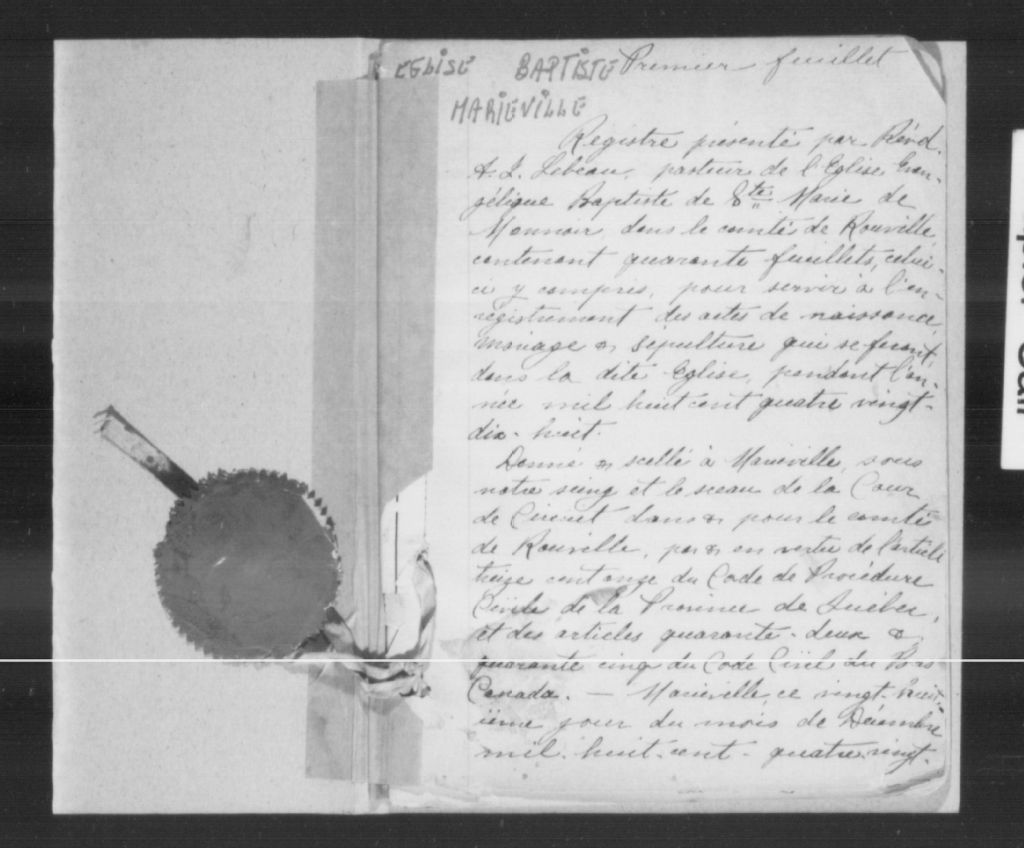 EGLISE BAPTISTE Premier feuillet
MARIEVILLE
Registre présenté par Révd.
A. L. Lebeau, pasteur de l'Eglise Evan-
gélique Baptiste de Ste Marie de
Monnoir, dans le comté de Rouville,
contenant quarante feuillets, celui-
ci y compris, pour servir à l'en-
registrement des actes de naissance,
mariage & sépulture qui se feront,
dans la dite Eglise, pendant l'an-
née mil huit cent quatre vingt-
dix-huit.
Donné & scellé à Marieville, sous
notre seing et le sceau de la Cour
de Circuit dans & pour le comté
de Rouville, par & en vertu de l'article
treize cent onze du Code de Procédure
Civile de la Province de Québec,
et des articles quarante-deux &
quarante cinq du Code Civil du Bas
Canada. — Marieville ce vingt-huit-
ième jour du mois de Décembre
mil-huit-cent-quatre-vingt-